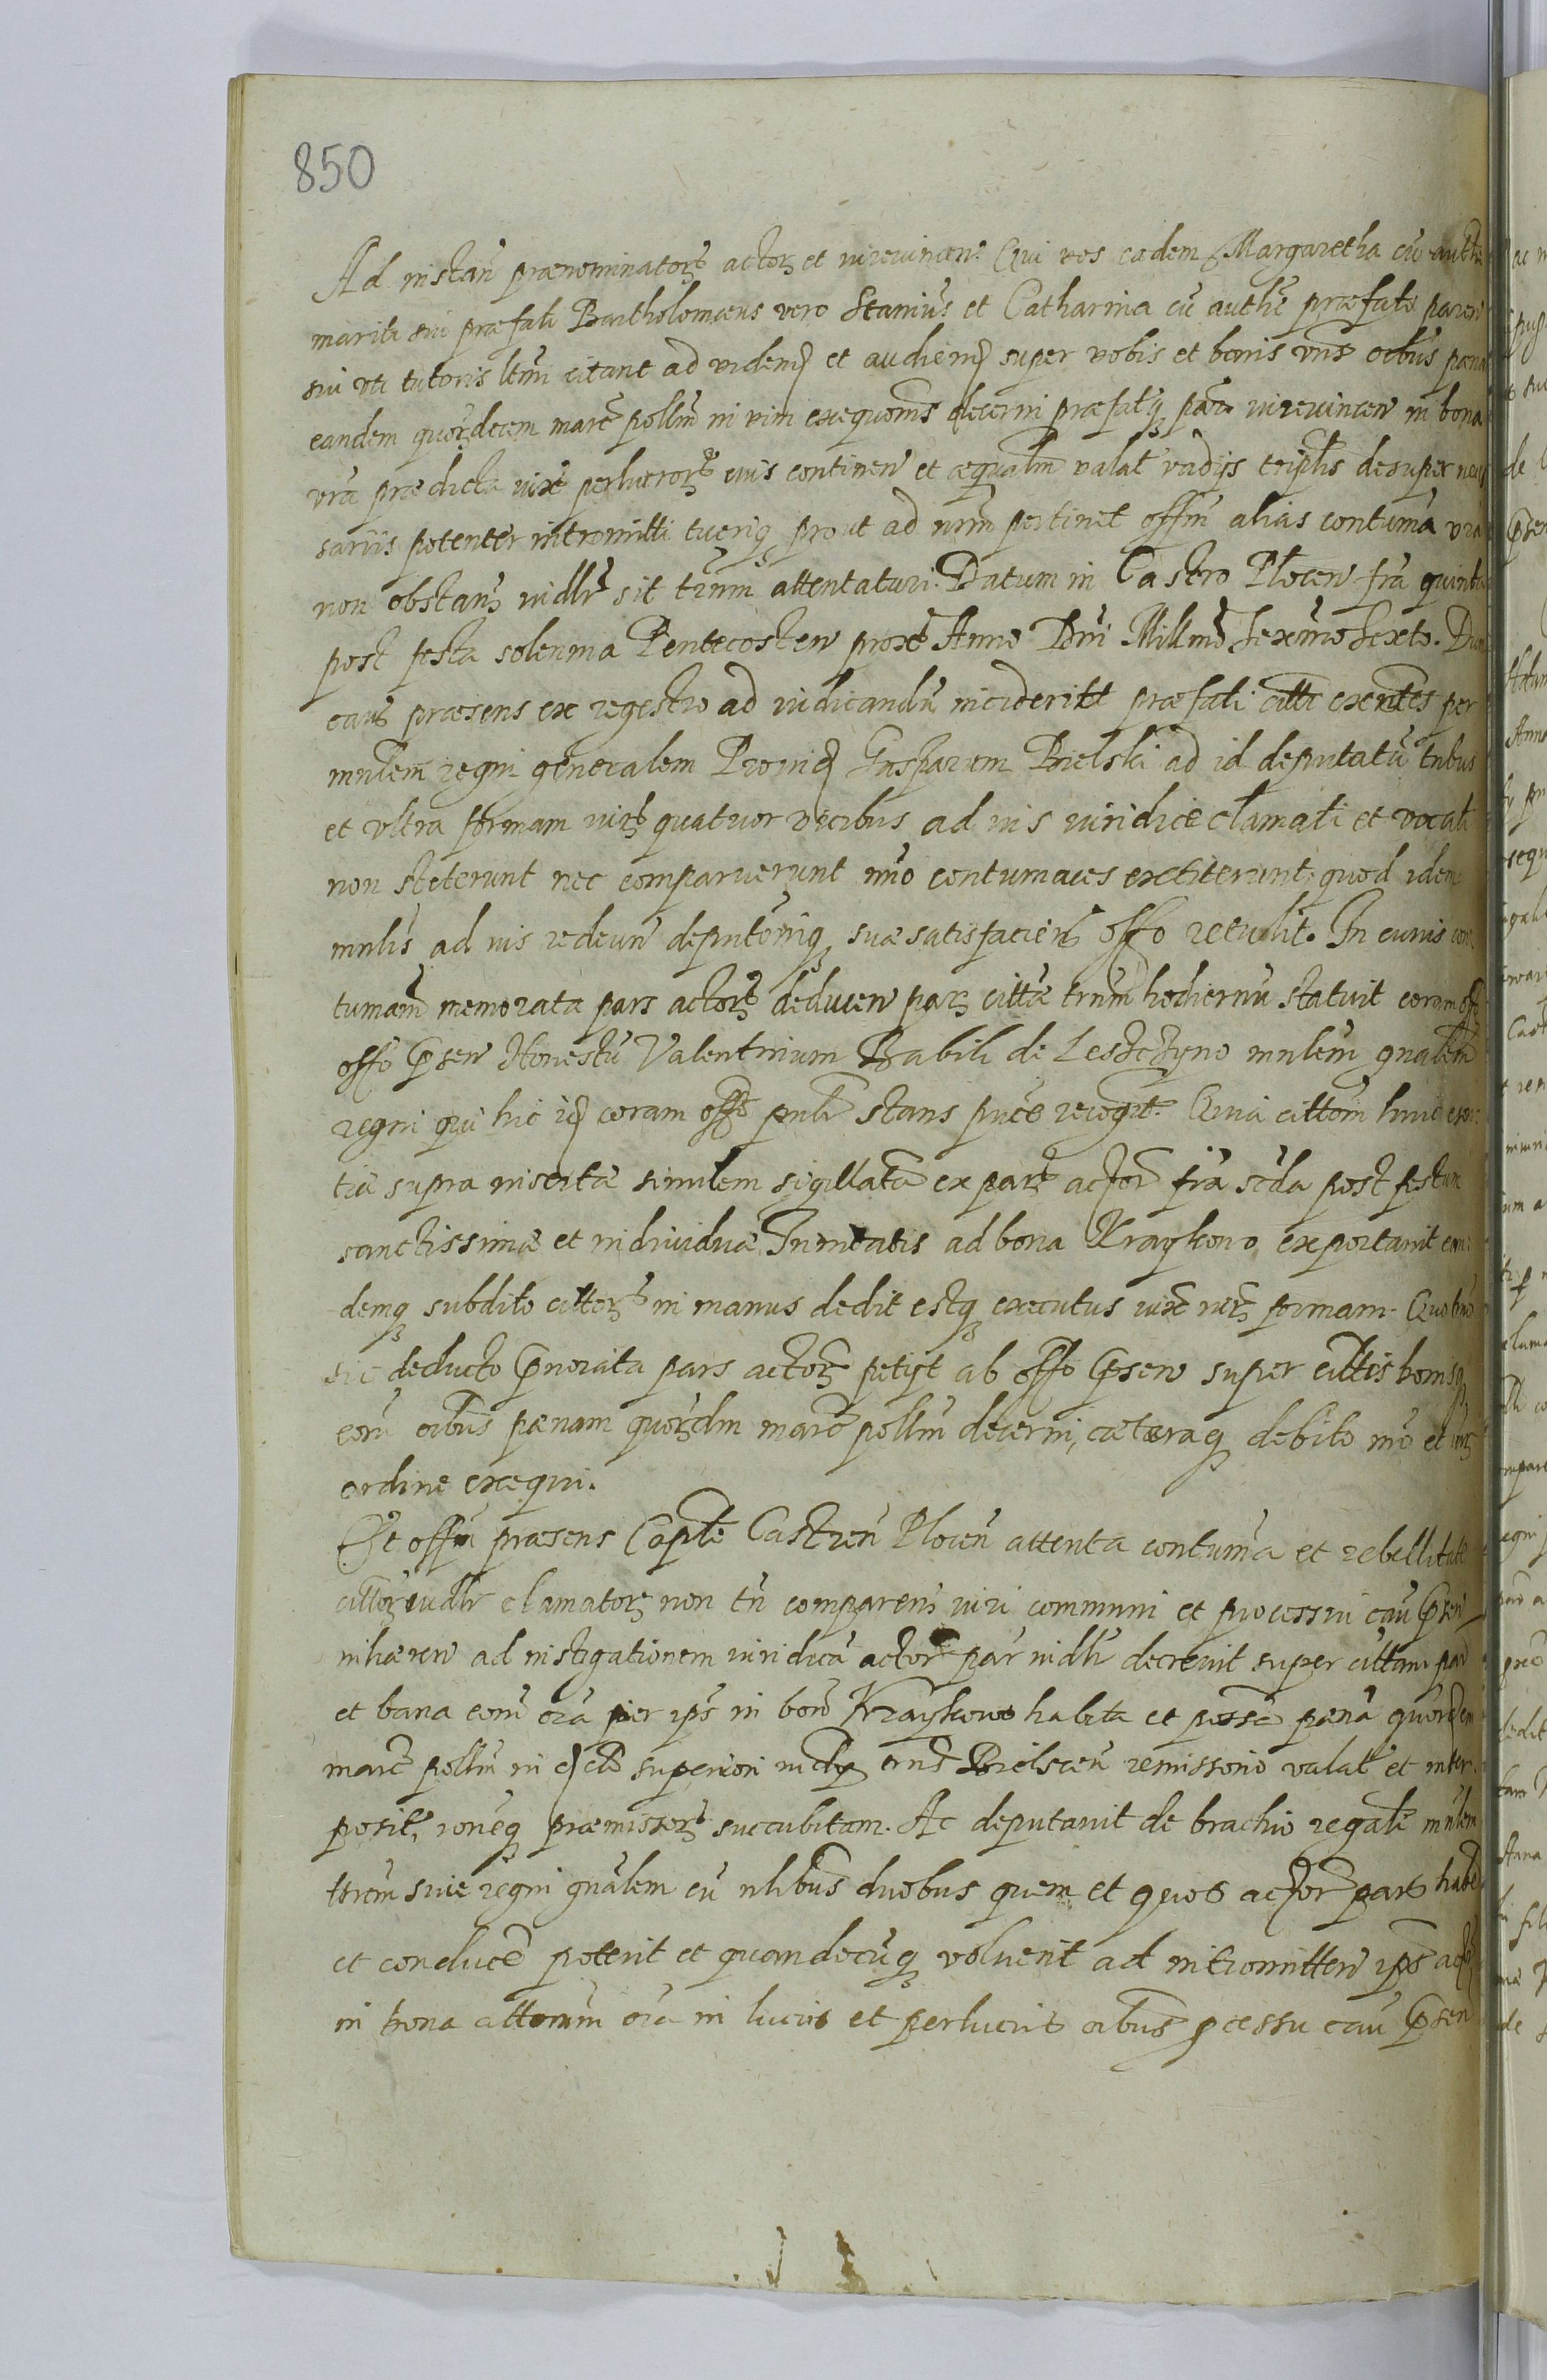 850
Ad instan prænominator actor et iurevincen Qui vos eadem Margaretha cū auth
mariti sui præfati Bartholomæus vero Stanius et Catharina cū auth præfato paren
sui uti tutoris ltmi citant ad videnđ et audienđ super vobis et bonis vris oibus pœna
eandem quordecem marc pollm in vim exequonis decerni præfatq par iurevincen in bona
vra prædicta iuxe perlucror cuis continen et æqualm valat vadijs triplis desuper neces
sariis potenter intromitti tueriq prout ad nrm pertinet offm alias contuma vra
non obstan iudlr sit trnm attentaturi. Datum in Castro Plocen fra quinta
post festa solenna Pentecosten prox Anno Dni Millmo Sexmo Sexto. Dum
caus præsens ex regestro ad iudicandū inciderit præfati citti exentes per
mnlem regni generalem Proviđ Gasparum Bielski ad id deputatū tribus
et ultra formam iuris quatuor vicibus ad ius iuridice clamati et vocati
non steterunt nec comparuerunt imo contumaces extiterunt, quod idem
mnlis ad ius redeun deputoniq suæ satisfacien offo retulit. In cuius con
tumam memorata pars actor deducen par citta trnm hodiernū statuit coram off
offo prsen Honestū Valentinum Babili de Lestchyno mnlem gnalem
regni qui hic iđ coram offo pnti stans pnce recogt. Quia cittom huic con
tra supra insertā simulem sigillatā ex par actor fra scda post festum
sanctissimæ et individuæ Trinitatis ad bona Kraykowo exportavit ean
demq subdito cittor in manus dedit estq executus iuxe iur formam. Quo trno
sic deducto prnorata pars actor petijt ab offo prsen super cittis bonisq
eorū oibus pœnam quordm marc pollm decerni, cæteraq debito mo et iur
ordine exequi.
Et offm præsens Caple Castren Plocen attenta contuma et rebellitate
cittor iudlr clamator non tn comparen iuri communi et processui cau prsen
inhæren ad instigationem iuridicā actor par iudlr decrevit super cittam par
et bona eorū oia per ips in bon Kraykowo habita et possa pœnā quordem
marc pollm in superiori Bielscen remissorio valat et inter
posit, roneq præmissor succubitam. Ac deputavit de brachio regali mnlem
trem sive regni gnalem cū nlibus duobus quem et quos actor pars habe
et conduce poterit et quandocūq voluerit ad intromitten ips act
in bona cittorum oia in lucris et perlucris oibus pcessu cau prsen